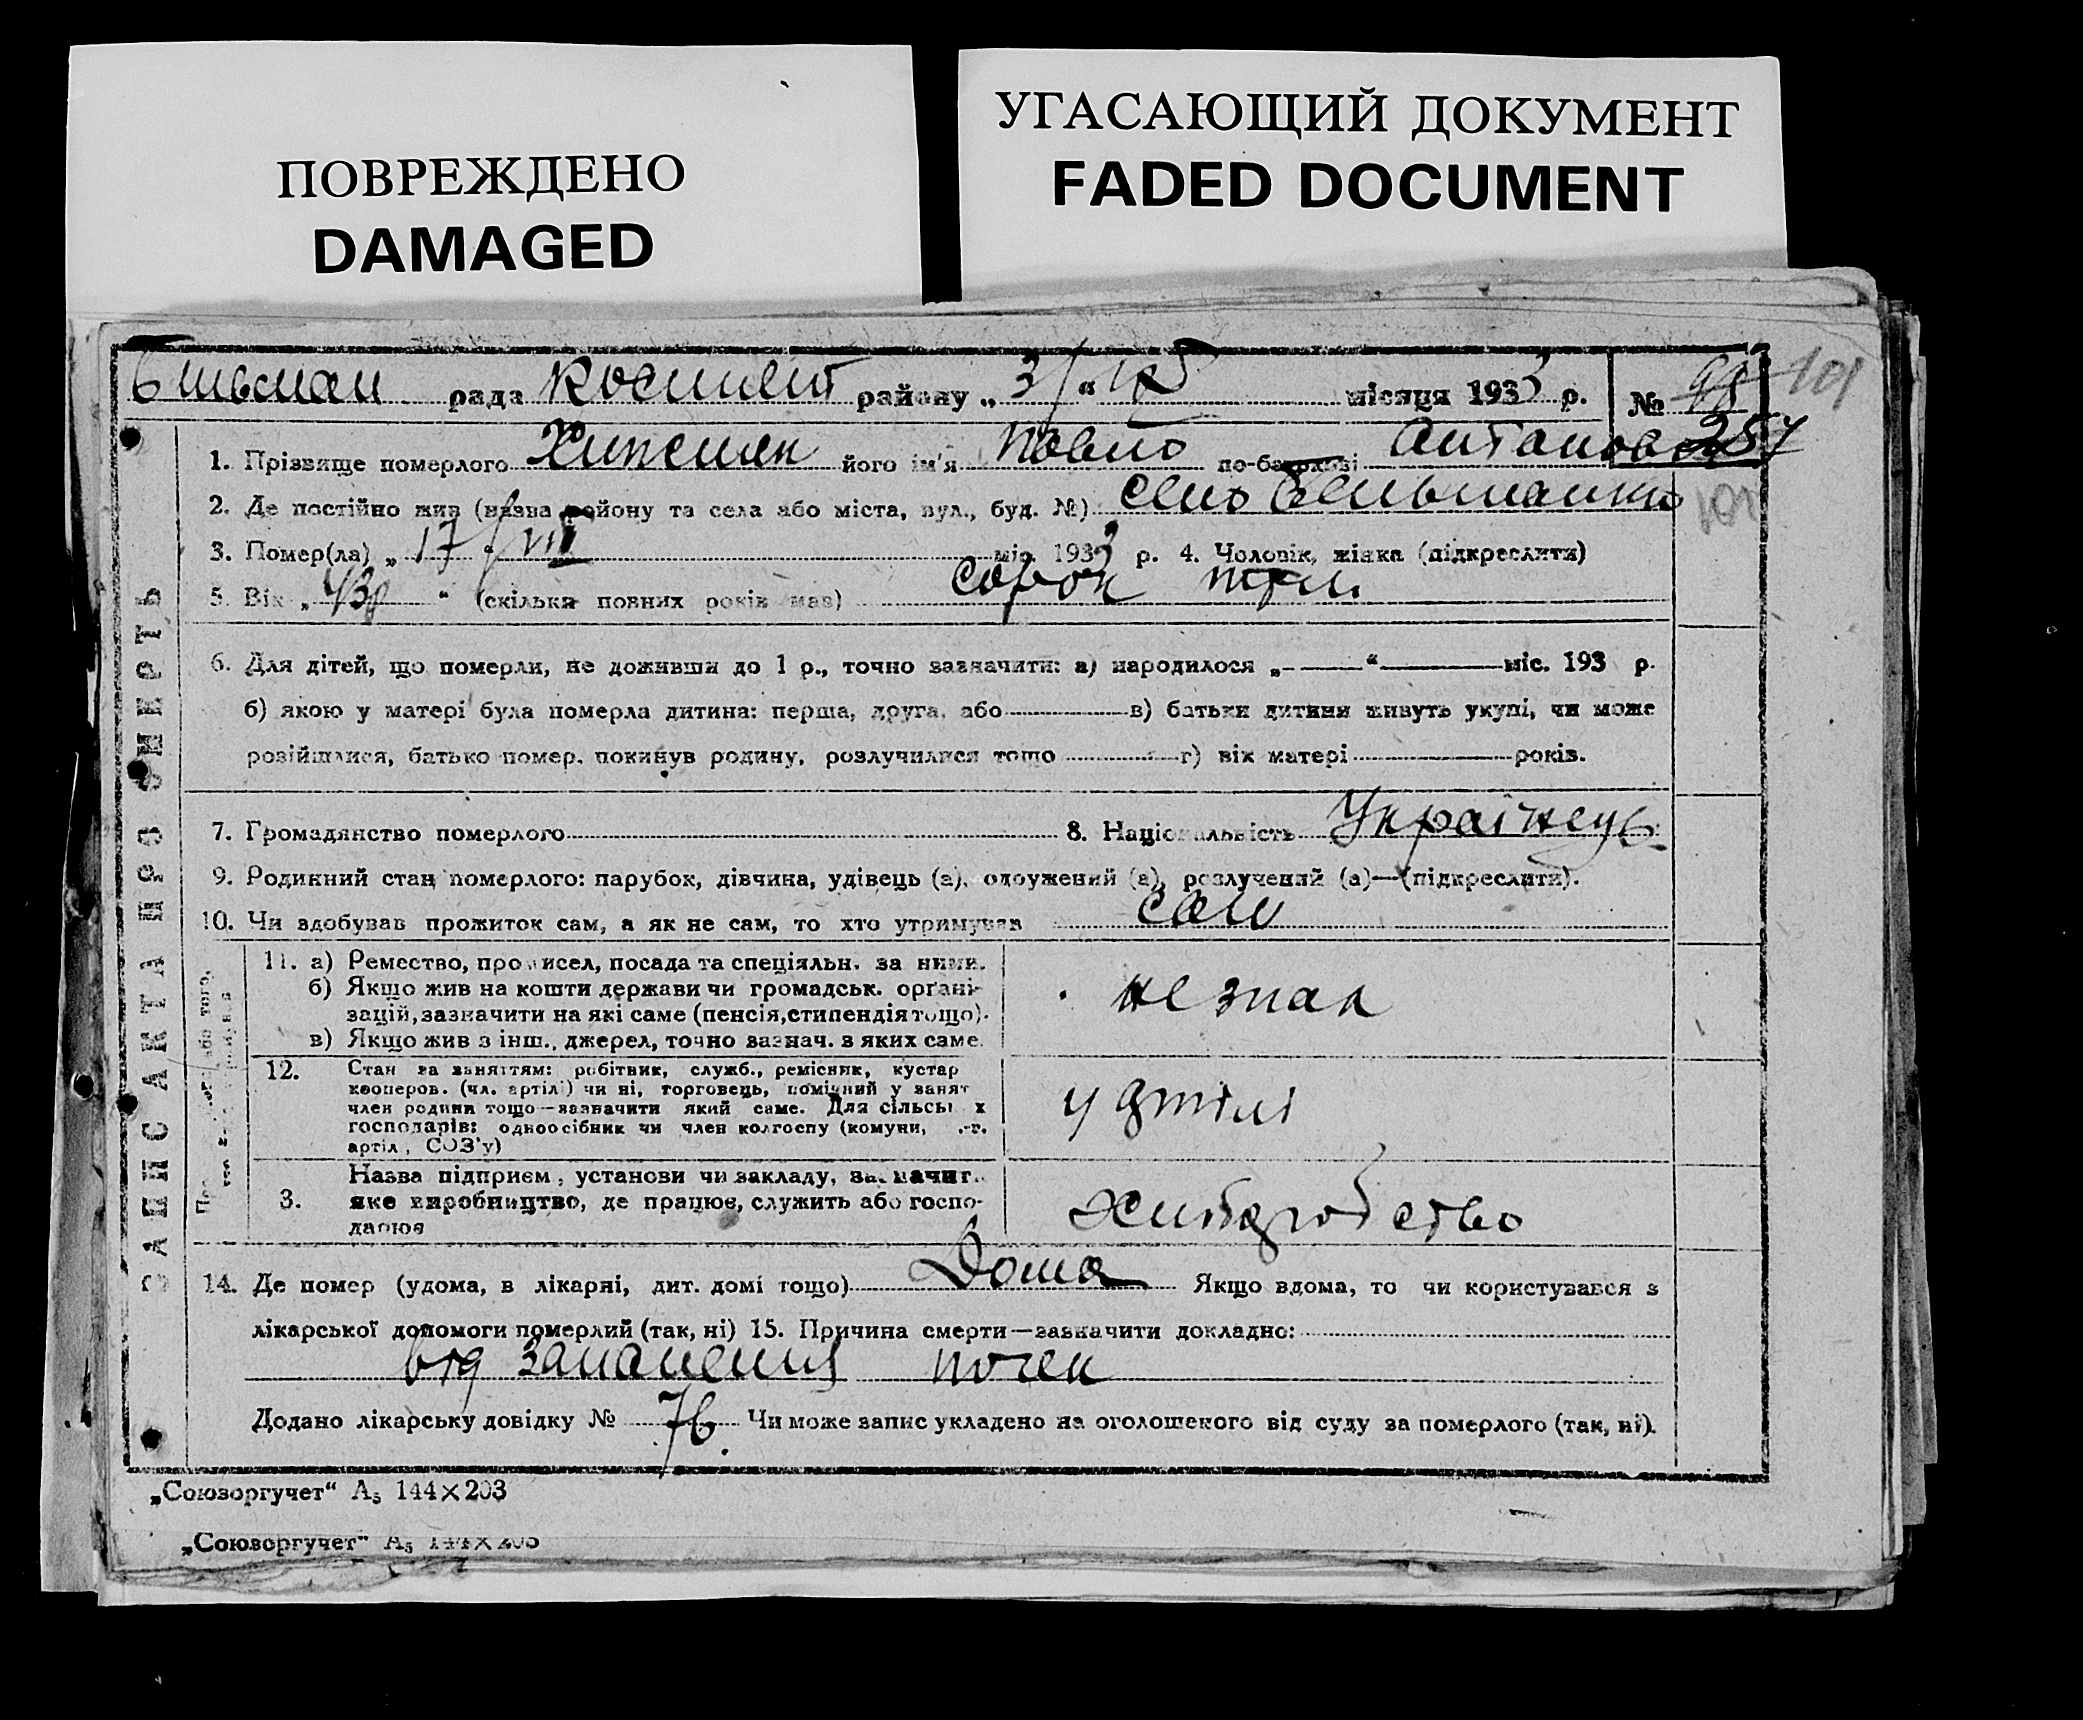 ПОВРЕЖДЕНО
DAMAGED
УГАСАЮЩИЙ ДОКУМЕНТ
FADED DOCUMENT
рада району „ 3 “ місяця 1933 р. № 101
257
1. Прізвище померлого його ім'я Павло по-батькові
2. Де постійно жив (назва району та села або міста, вул., буд. №) село
3. Помер(ла) „ 17 “ VIII міс. 1933 р. 4. Чоловік, жінка (підкреслити)
5. Вік „ 43 “ (скільки повних років мав) сорок три
6. Для дітей, що померли, не доживши до 1 р., точно зазначити: а) народилося „ “ міс. 193 р.
б) якою у матері була померла дитина: перша, друга, або в) батьки дитини живуть укупі, чи може
розійшлися, батько помер, покинув родину, розлучилися тощо г) вік матері років.
7. Громадянство померлого 8. Національність Українець
9. Родинний стан померлого: парубок, дівчина, удівець (а), одружений (а), розлучений (а)—(підкреслити).
10. Чи здобував прожиток сам, а як не сам, то хто утримував сам
11. а) Ремество, промисел, посада та спеціяльн. за ними.
б) Якщо жив на кошти держави чи громадськ. органі-
зацій, зазначити на які саме (пенсія, стипендія тощо).
в) Якщо жив з інш., джерел, точно зазнач. з яких саме.
12. Стан за заняттям: робітник, служб., ремісник, кустар
кооперов. (чл. артілі) чи ні, торговець, помічний у занят
член родини тощо—зазначити який саме. Для сільськ х
господарів: одноосібник чи член колгоспу (комуни, .-г.
артіл, СОЗ'у)
у артілі
3. Назва підприєм, установи чи закладу, зазначит.
яке виробництво, де працює, служить або госпо-
дарює
14. Де помер (удома, в лікарні, дит. домі тощо) Дома Якщо вдома, то чи користувався з
лікарської допомоги померлий (так, ні) 15. Причина смерти—зазначити докладно:
від запалення почек
Додано лікарську довідку № 76 Чи може запис укладено на оголошеного від суду за померлого (так, ні).
ЗАПИС АКТА ПРО СМЕРТЬ
„Союзоргучет“ А₅ 144×203
„Союзоргучет“ А₅ 144×203